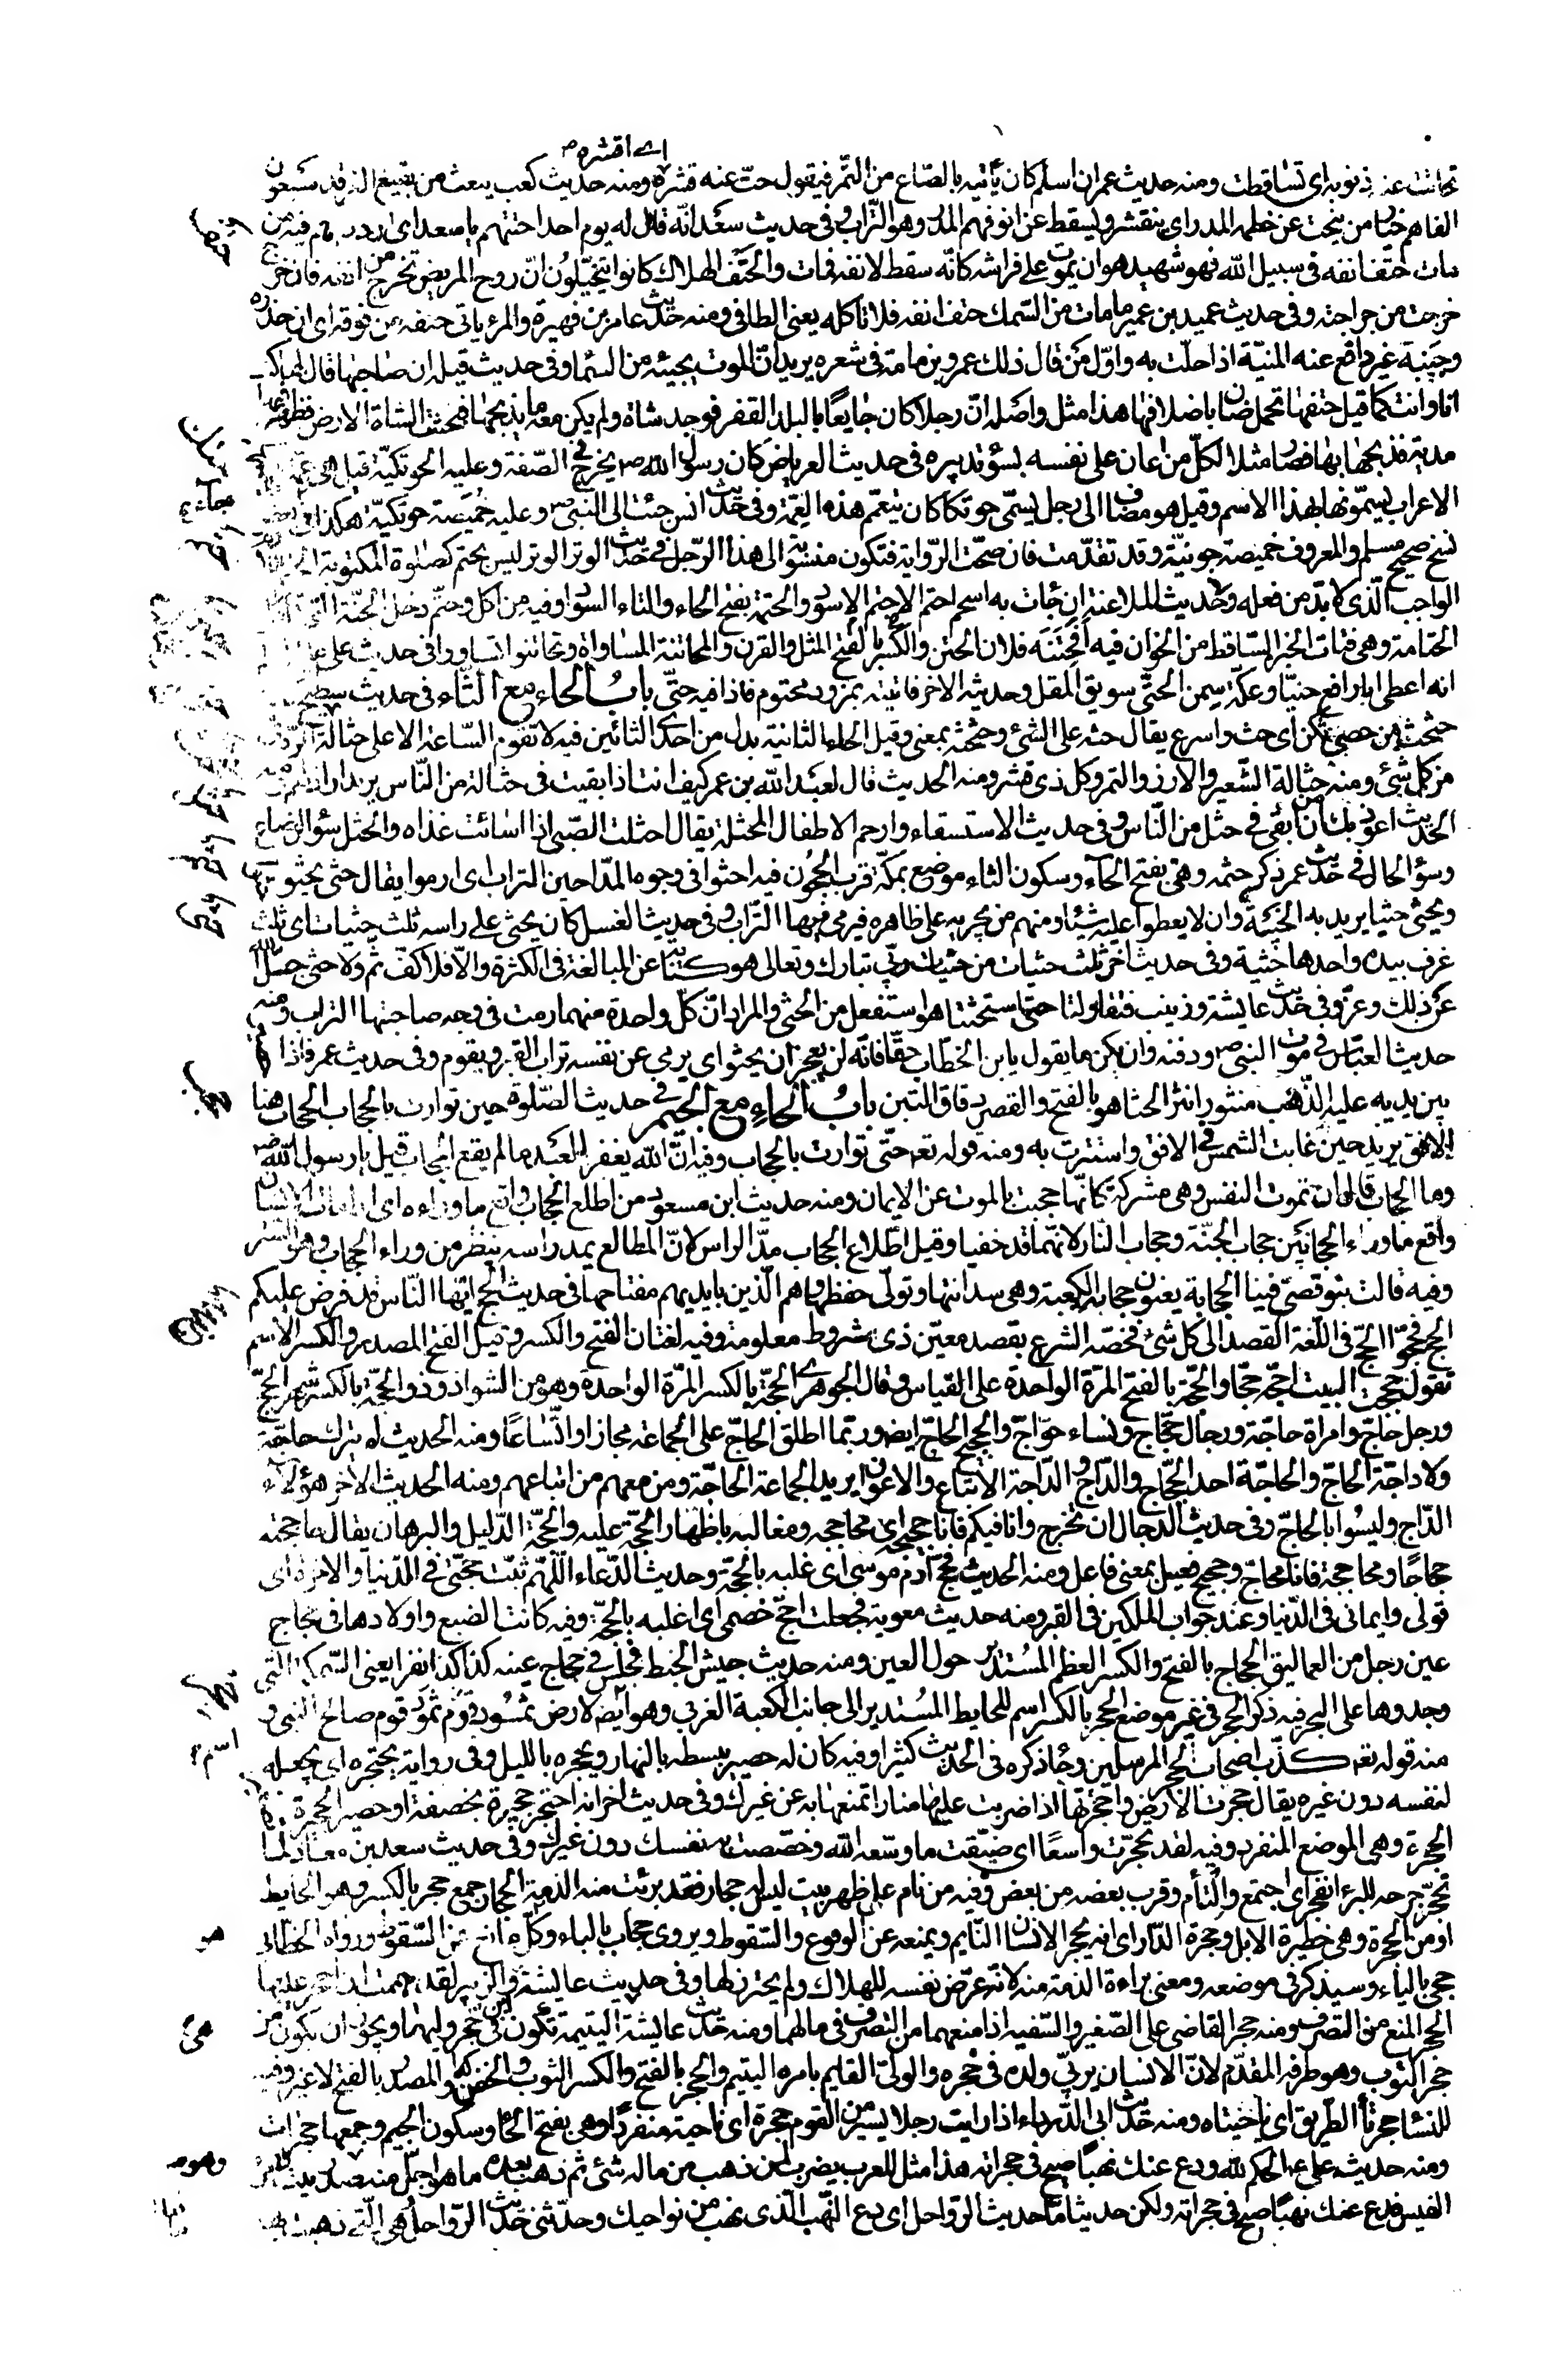 اے اقشره
تحاتت عنه ذنوبه اى تساقطت ومنه حديث عمر ان اسلم كان يأتيه بالصّاع من التّمر فيقول حتّ عنه قشره ومنه حديث كعب يبعث من بقيع الغرقد سبعون
الفا هم خيار من ينحت عن خطمه المدر اى ينقشر ويسقط عن انوفهم المدر وهو التّراب وفى حديث سعد انّه قال له يوم احد احتتهم يا سعد اى ارددهم فيه من
مات حتف انفه فى سبيل الله فهو شهيد هو ان يموت على فراشه كانّه سقط لانفه فمات والحتف الهلاك كانوا يتخيّلون انّ روح المريض تخرج من انفه فان جرح
خرجت من جراحته وفى حديث عبيد بن عمير ما مات من السّمك حتف انفه فلا تاكله يعنى الطافى ومنه حديث عامر بن فهيرة والمرء ياتى حتفه من فوقه اى ان حذره
وجبنه غير دافع عنه المنيّة اذا حلّت به واوّل من قال ذلك عمرو بن مامة فى شعره يريد انّ الموت يجيئه من السّماء وفى حديث قيلة ان صاحبها قال لها
انا وانت كما قيل حتفها تحمل ضان باضلافها هذا مثل واصله انّ رجلا كان جايعًا بالبلد القفر فوجد شاة ولم يكن معه ما يذبحها به فبحثت الشاة الارض فظهر فيها
مدية فذبحها بها فصار مثلا لكلّ من اعان على نفسه بسوء تدبيره فى حديث العرباض كان رسول الله ص يخرج فى الصّفة وعليه الحوتكيّة قيل هى عمّة
الاعراب يسمّونها بهذا الاسم وقيل هو مضاف الى رجل يسمّى حوتكا كان يتعمّم هذه العِمّة وفى حديث انس جئت الى النبى ص وعليه خميصة حوتكيّة هكذا فى بعض
نسخ صحيح مسلم والمعروف خميصة جونيّة وقد تقدّمت فان صحّت الرّواية فتكون منسوبة الى هذا الرّجل فى حديث الوتر الوتر ليس بحتم كصلوة المكتوبة
الواجب الّذى لا بدّ من فعله وحديث الملاعنة ان جات به اسحم احتم الاحتم الاسود والحتمة بفتح الحاء والتاء السواد وفيه من اكل وحتّم دخل الجنّة
الحتامة وهى فتات الخبز السّاقط من الخوان فيه أفحتنه فلان الحتن والكسر بالفتح المثل والقرن والمحاتنة المساواة وتحاتنوا تساووا فى حديث على ع
انه اعطى ابا رافع حتيّا وعكّة سمن الحتىّ سويق المقل وحديثه الاخر فاتيته بمزود مختوم فاذا فيه حتىّ باب الحاء مع الثاء فى حديث سطيح
حثحث من حضنى ثكن اى حث واسرع يقال حثه على الشئ وحثحثه بمعنى وقيل الحاء الثانية بدل من احدى الثائين فيه لا تقوم السّاعة الا على حثالة
من كل شئ ومنه حثالة الشّعير والارز والتمر وكل ذى قشر ومنه الحديث قال لعبد الله بن عمر كيف انت اذا بقيت فى حثالة من النّاس يريد اراذلهم ومنه
الحديث اعوذ بك من ان ابقى فى حثل من النّاس وفى حديث الاستسقاء وارحم الاطفال المحثلة يقال احثلت الصّبى اذا اسائت غذاه والحثل سوء الرضاع
وسوء الحال فى حديث عمر ذكر حثمه وهى بفتح الحاء وسكون الثاء موضع بمكّة قرب الحجون فيه احثوا فى وجوه المدّاحين التراب اى ارموا يقال حثى يحثو
ويحثى حثيا يريد به الخيبة وان لا يعطوا عليه شيئا ومنهم من يجريه على ظاهره فيرمى فيها التّراب وفى حديث الغسل كان يحثى على راسه ثلث حثيات اى ثلث
غرف بيده واحدها حثية وفى حديث اخر ثلث حثيات من حثيات ربّى تبارك وتعالى هو كناية عن المبالغة فى الكثرة والّا فلا كفّ ثمّ ولا حثى جلّ الله
عن ذلك وعزّ وفى حديث عايشة وزينب فتقاولتا حتى استحثتا هو استفعل من الحثى والمراد انّ كلّ واحدة منهما رمت فى وجه صاحبتها التراب ومنه
حديث العبّاس فى موت النبى ص ودفنه وان يكن ما يقول يا بن الخطّاب حقّا فانّه لن يعجز ان يحثو اى يرمى عن نفسه تراب القبر ويقوم وفى حديث عمر فاذا
بين يديه عليه الذّهب منثورا نثر الحثا هو بالفتح والقصر دقاق التبن باب الحاء مع الجيم فى حديث الصّلوة حين توارت بالحجاب الحجاب هنا
الافق يريد حين غابت الشمس فى الافق واستترت به ومنه قوله تعـ حتّى توارت بالحجاب وفيه انّ الله يغفر للعبد ما لم يقع الحجاب قيل يا رسول الله
وما الحجاب قال ان تموت النفس وهى مشركة كانّها حجبت بالموت عن الايمان ومنه حديث ابن مسعود من اطلع الحجاب واقع ما وراءه اى اذا مات الانسان
واقع ما وراء الحجابين حجاب الجنّة وحجاب النّار لانّهما قد خفيا وقيل اطّلاع الحجاب مدّ الراس لانّ المطالع يمد راسه ينظر من وراء الحجاب وهو السّتر
وفيه قالت بنو قصىّ فينا الحجابة يعنون حجابة الكعبة وهى سدانتها وتولّى حفظها وهم الّذين بايديهم مفتاحها فى حديث الحج ايّها النّاس قد فرض عليكم
الحج فحجّوا الحجّ فى اللّغة القصد الى كل شئ فخصّه الشرع بقصد معيّن ذى شروط معلومة وفيه لغتان الفتح والكسر وقيل الفتح المصدر والكسر الاسم
تقول حججت البيت احجّه حجّا والحجّة بالفتح المرّة الواحدة على القياس وقال الجوهرى الحجّة بالكسر المرّة الواحدة وهو من الشواذ وذو الحجّة بالكسر شهر الحجّ
ورجل حاجّ وامراة حاجّة ورجال حجّاج ونساء حوّاجّ والحجيج الحاجّ ايضا وربّما اطلق الحاجّ على الجماعة مجازا واتّساعًا ومنه الحديث لم يترك حاجّة
ولا داجّة الحاجّ والحاجّة احد الحجّاج والدّاج والدّاجة الاتباع والاعوان يريد الجماعة الحاجّة ومن معهم من اتباعهم ومنه الحديث الاخر هؤلاء
الدّاج وليسوا بالحاجّ وفى حديث الدّجال ان يخرج وانا فيكم فانا حجيجه اى محاجّه ومغالبه باظهار الحجّة عليه والحجّة الدّليل والبرهان يقال حاججته
حجاجًا ومحاججة فانا محاجّ وحجيج فعيل بمعنى فاعل ومنه الحديث فحجّ آدم موسى اى غلبه بالحجّة وحديث الدّعاء اللّهمّ ثبّت حجّتى فى الدّنيا والاخرة اى
قولى وايمانى فى الدّنيا وعند جواب الملكين فى القبر ومنه حديث معوية فجعلت احجّ خصمى اى اغلبه بالحجّة وفيه كانت الضبع واولادها فى حجاج
عين رجل من العماليق الحجاج بالفتح والكسر العظم المستدير حول العين ومنه حديث جيش الخبط فجلس فى حجاج عينه كذا كذا نفرا يعنى السّمكة التى
وجدوها على البحر فيه ذكر الحجر فى غير موضع الحجر بالكسر اسم للحايط المستدير الى جانب الكعبة الغربى وهو ايضا لارض ثمود قوم صالح النبى و
اسم
منه قوله تعـ كذّب اصحاب الحجر المرسلين وجاء ذكره فى الحديث كثيرا وفيه كان له حصير يبسطه بالنهار ويحجره بالليل وفى رواية يحتجره اى يجعله
لنفسه دون غيره يقال حجرت الارض واحتجرتها اذا ضربت عليها منارا تمنعها به عن غيرك وفى حديث اخر انه احتجر حجيرة بخصفة او حصير الحجيرة
الحجرة وهى الموضع المنفرد وفيه لقد تحجّرت واسعًا اى ضيّقت ما وسّعه الله وخصّصت به نفسك دون غيرك وفى حديث سعد بن معاذ لما
تحجّر جرحه للبرء انفجر اى اجتمع والتأم وقرب بعضه من بعض وفيه من نام على ظهر بيت ليس له حجار فقد برئت منه الذمة الحجار جمع حجر بالكسر وهو الحايط
او من الحجرة وهى حظيرة الابل وحجرة الدّار اى انه يحجر الانسان النّايم ويمنعه عن الوقوع والسّقوط ويروى حجاب بالباء وكلّ مانع من السّقوط ورواه الخطابى
هو
حجى بالياء وسيذكر فى موضعه ومعنى براءة الذمة منه لانّه عرّض نفسه للهلاك ولم يحترز لها وفى حديث عايشة وابن الزبير لقد هممت ان احجر عليها
الحجر المنع من التصرف ومنه حجر القاضى على الصّغير والسّفيه اذا منعهما من التصرف فى مالهما ومنه حديث عايشة اليتيمة تكون فى حجر وليها ويجوز ان يكون من
هى
حجر الثوب وهو طرفه المقدّم لانّ الانسان يربّى ولده فى حجره والولىّ القايم بامره اليتيم والحجر بالفتح والكسر الثوب والحضن والمصدر بالفتح لا غير وفيه
للنسا حجرتا الطّريق اى ناحيتاه ومنه حديث ابى الدّرداء اذا رايت رجلا يسير من القوم حجرة اى ناحية منفردا وهى بفتح الحاء وسكون الجيم وجمعها حجرات
ومنه حديث على ع الحكم لله ودع عنك نهبًا صيح فى حجراته هذا مثل للعرب يضرب لمن ذهب من ماله شئ ثم ذهب بعده ما هو اجلّ منه صدر بيت
وهو
القيس فدع عنك نهبًا صيح فى حجراته ولكن حديثا ما حديث الرّواحل اى دع النّهب الّذى نهب من نواحيك وحدّثنى حديث الرّواحل هى الّتى ذهبت بها